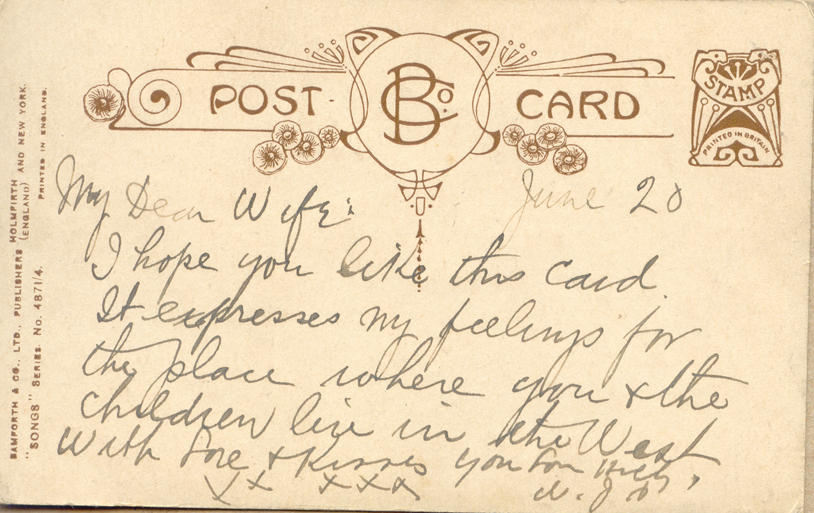 POST CARD
B Co.
STAMP
PRINTED IN BRITAIN
BAMFORTH & CO., LTD., PUBLISHERS HOLMFIRTH (ENGLAND) AND NEW YORK.
"SONGS" SERIES. No. 4871/4.
PRINTED IN ENGLAND.
June 20
My Dear Wife:
I hope you like this card.
It expresses my feelings for
the place where you & the
children live in the West
With love & kisses your
xx xxxx